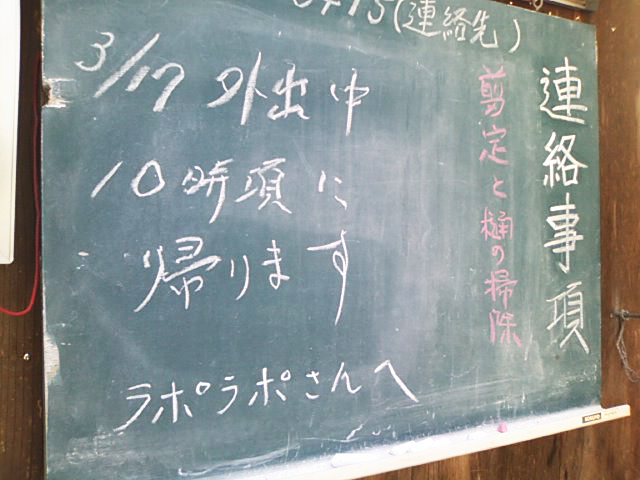 (連絡先)
連絡事項
剪定と樋の掃除
3/17 外出中
10時頃に
帰ります
ラポラポさんへ